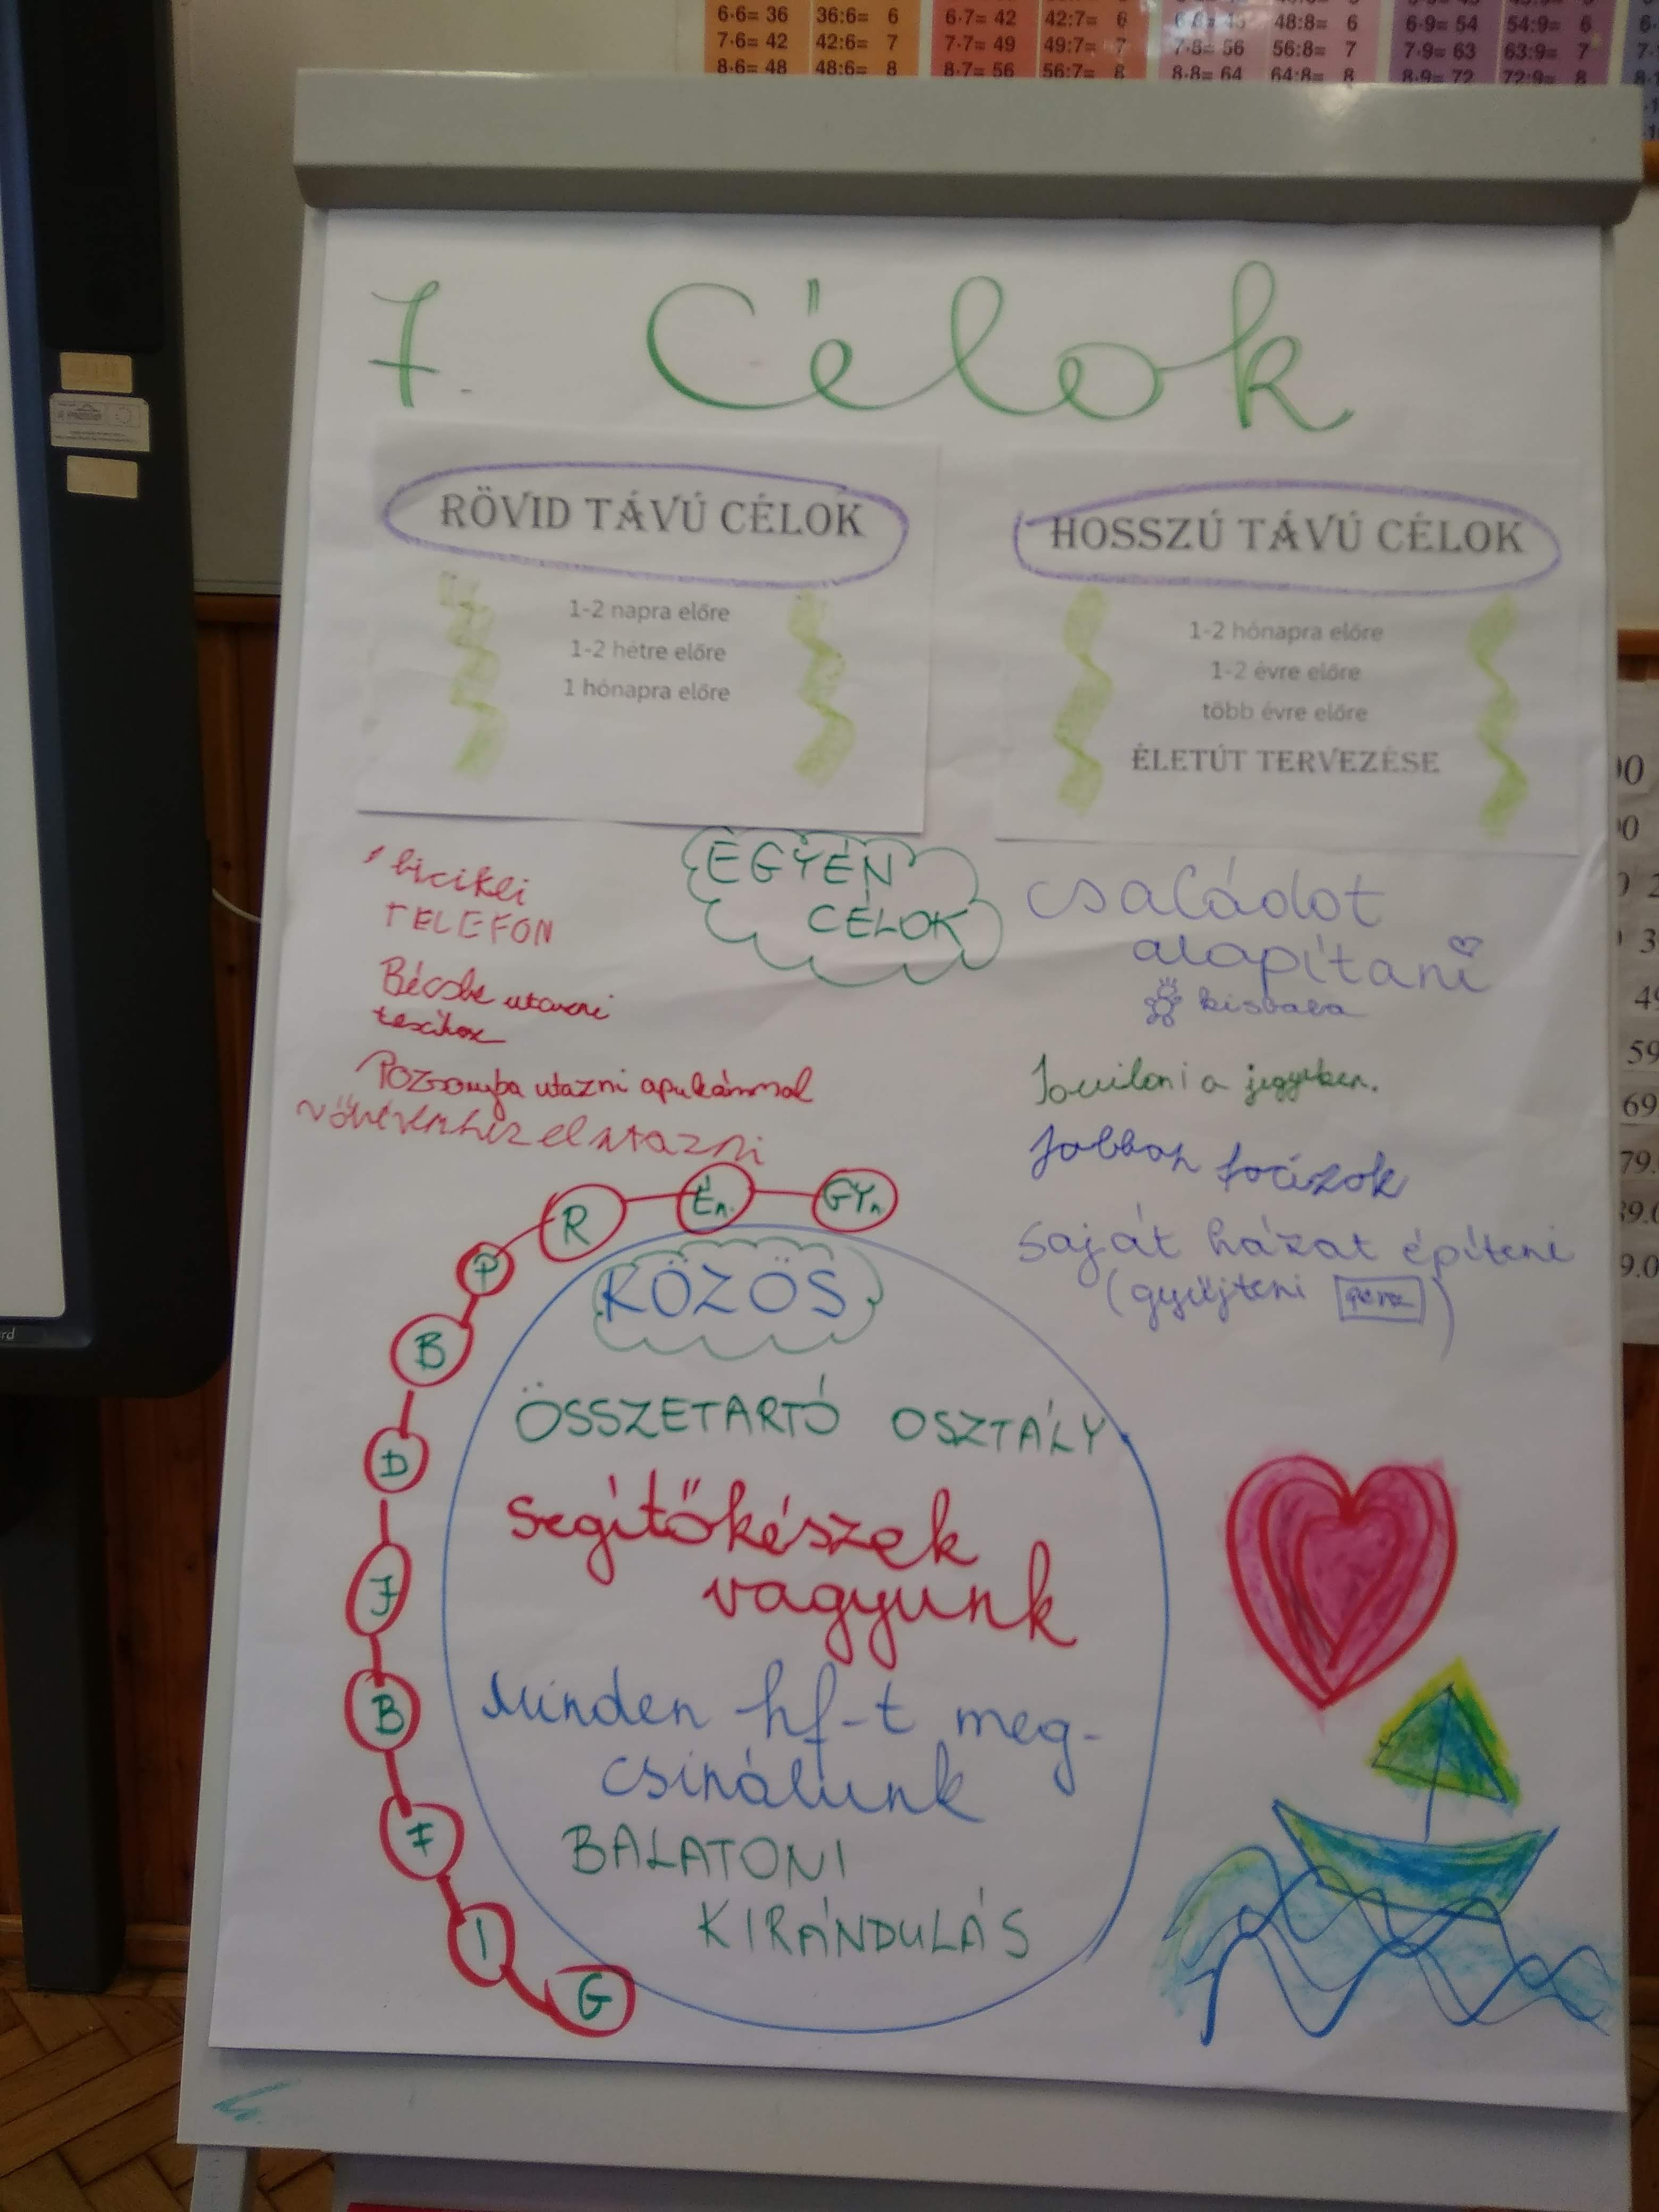 6·6= 36 36:6= 6 6·7= 42 42:7= 6 48:8= 6 6·9= 54 54:9= 6
7·6= 42 42:6= 7 7·7= 49 49:7= 7 7·8= 56 56:8= 7 7·9= 63 63:9= 7
8·6= 48 48:6= 8 8·7= 56 56:7= 8 8·8= 64 64:8= 8 8·9= 72 72:9= 8
7. Célok
RÖVID TÁVÚ CÉLOK
1-2 napra előre
1-2 hétre előre
1 hónapra előre
HOSSZÚ TÁVÚ CÉLOK
1-2 hónapra előre
1-2 évre előre
több évre előre
ÉLETÚT TERVEZÉSE
EGYÉN
CÉLOK
bicikli
TELEFON
Bécsbe utazni
Pozsonyba utazni apukámmal
nővéremhez elutazni
családot
alapítani
kisbaba
Javitani a jegyeken.
Jobban focizok
saját házat építeni
(gyűjteni pénz)
GYn.
Én.
R
P
B
D
J
B
F
I
G
KÖZÖS
ÖSSZETARTÓ OSZTÁLY
segítőkészek
vagyunk
Minden hf-t meg-
csinálunk
BALATONI
KIRÁNDULÁS